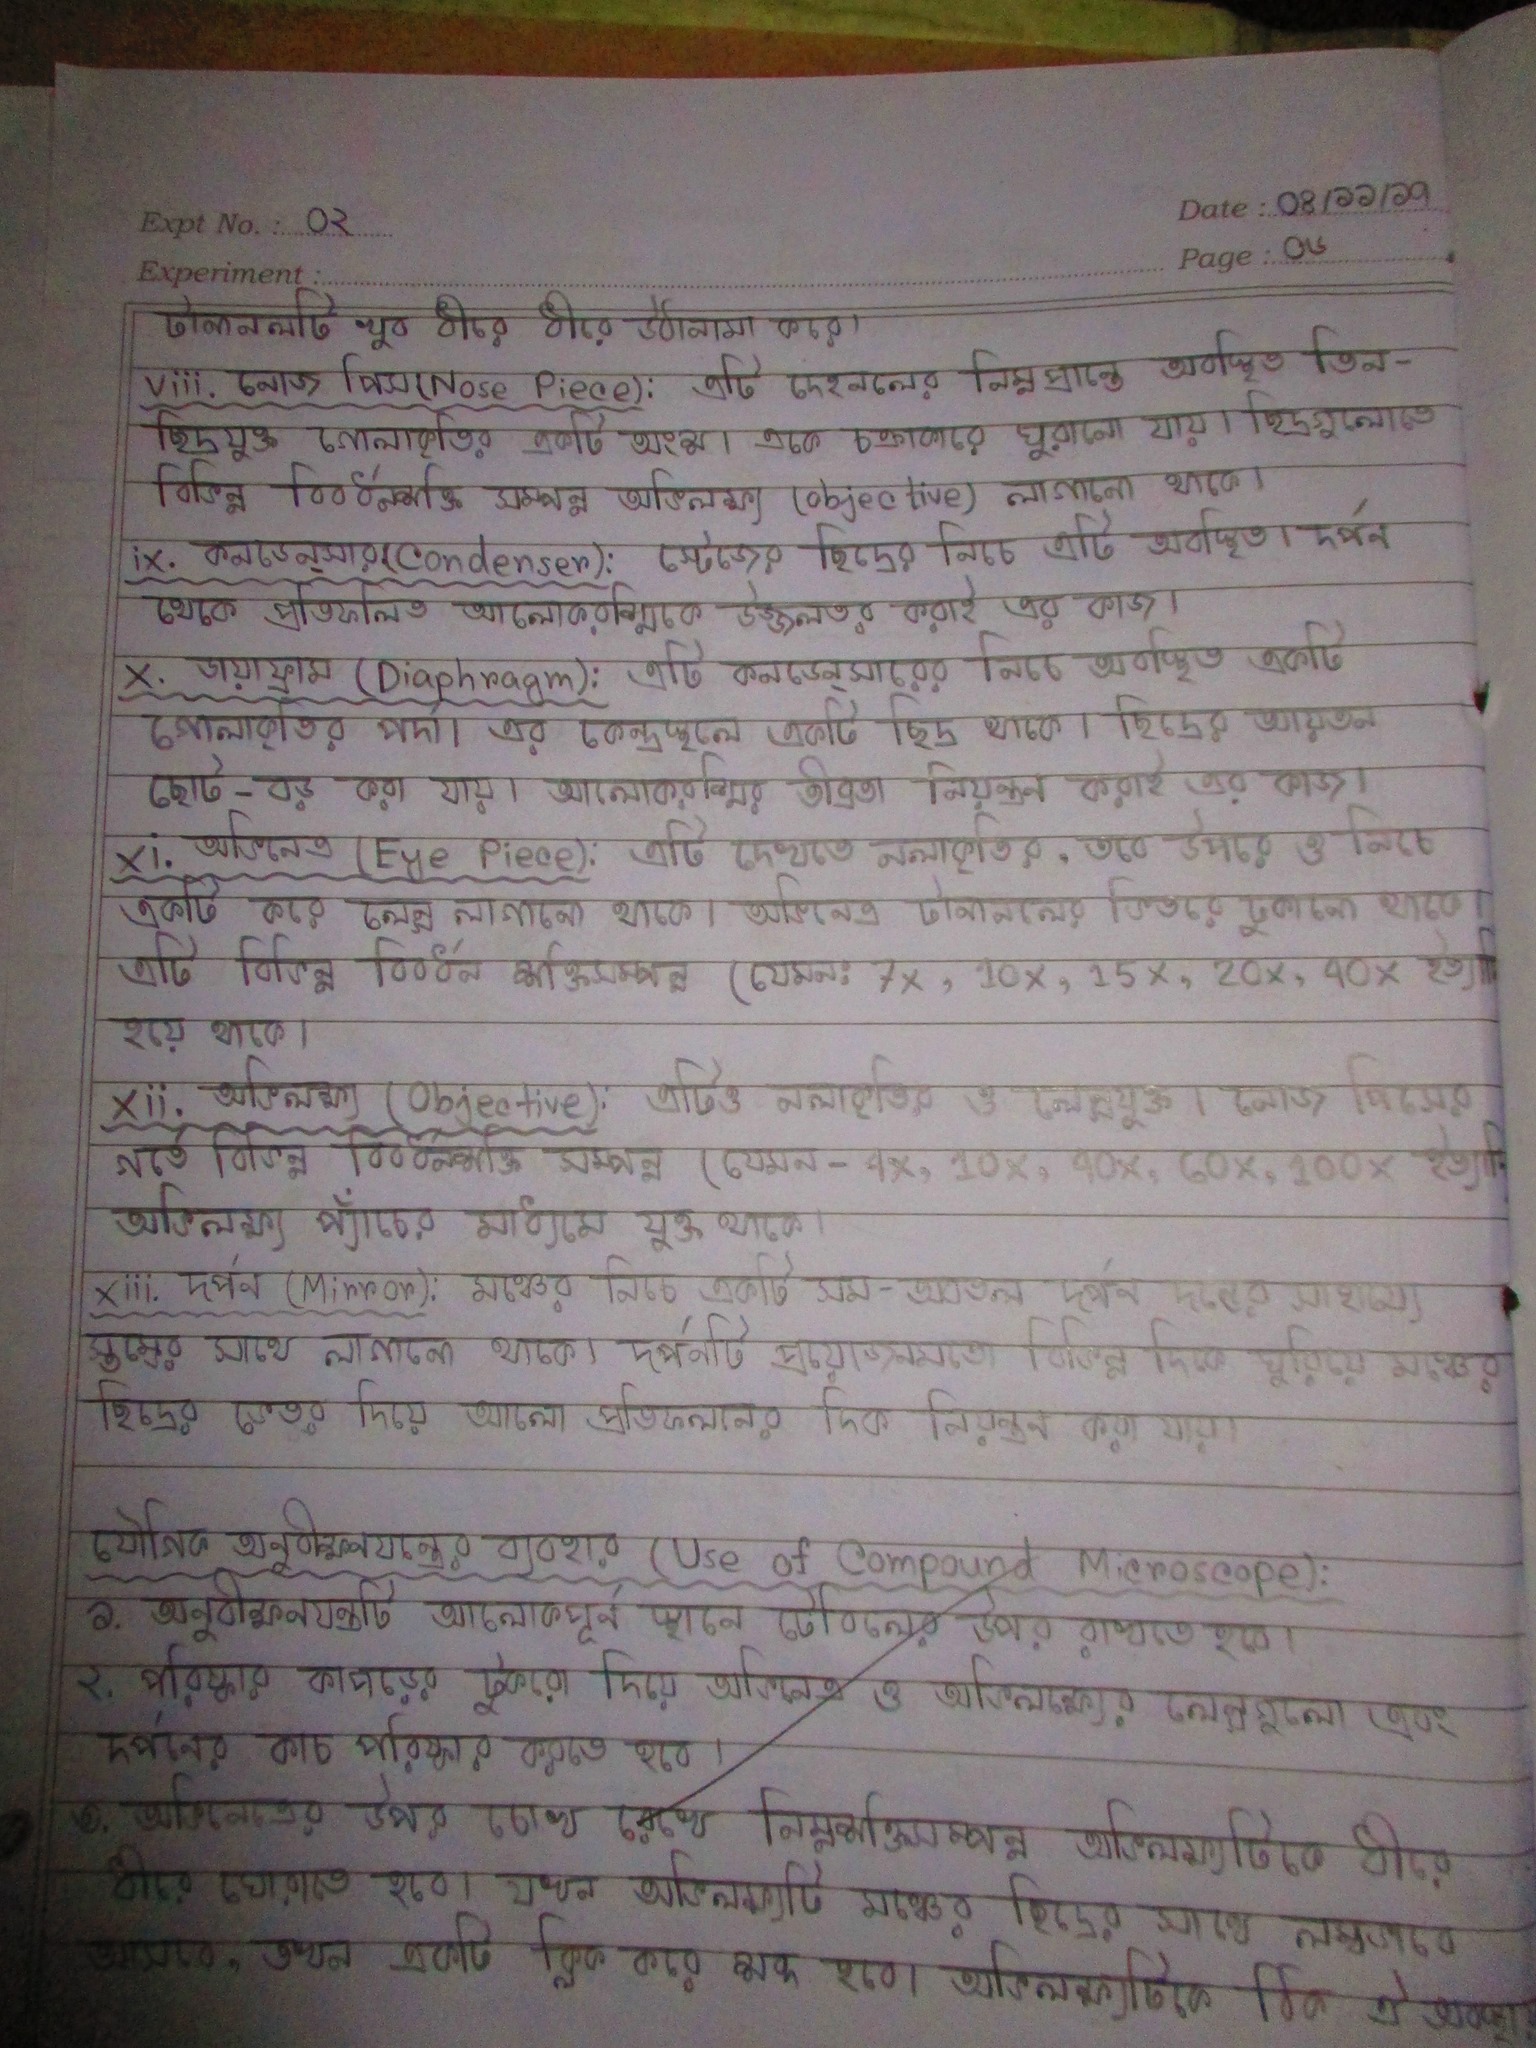 Expt No. : ০২
Date : ০৪/১১/১৭
Experiment :
Page : ০৬
টানানলটি খুব ধীরে ধীরে উঠানামা করে।
viii. নোজ পিস(Nose Piece): এটি দেহনলের নিম্নপ্রান্তে অবস্থিত তিন-
ছিদ্রযুক্ত গোলাকৃতির একটি অংশ। একে চক্রাকারে ঘুরানো যায়। ছিদ্রগুলোতে
বিভিন্ন বিবর্ধনশক্তি সম্পন্ন অভিলক্ষ্য (objective) লাগানো থাকে।
ix. কনডেন্সার(Condenser): স্টেজের ছিদ্রের নিচে এটি অবস্থিত। দর্পন
থেকে প্রতিফলিত আলোকরশ্মিকে উজ্জ্বলতর করাই এর কাজ।
x. ডায়াফ্রাম (Diaphragm): এটি কনডেন্সারের নিচে অবস্থিত একটি
গোলাকৃতির পর্দা। এর কেন্দ্রস্থলে একটি ছিদ্র থাকে। ছিদ্রের আয়তন
ছোট-বড় করা যায়। আলোকরশ্মির তীব্রতা নিয়ন্ত্রন করাই এর কাজ।
xi. অভিনেত্র (Eye Piece): এটি দেখতে নলাকৃতির, তবে উপরে ও নিচে
একটি করে লেন্স লাগানো থাকে। অভিনেত্র টানানলের ভিতরে ঢুকানো থাকে।
এটি বিভিন্ন বিবর্ধন শক্তিসম্পন্ন (যেমন: 7x, 10x, 15x, 20x, 40x ইত্যাদি
হয়ে থাকে।
xii. অভিলক্ষ্য (Objective): এটিও নলাকৃতির ও লেন্সযুক্ত। নোজ পিসের
গর্তে বিভিন্ন বিবর্ধনশক্তি সম্পন্ন (যেমন- 4x, 10x, 40x, 60x, 100x ইত্যাদি
অভিলক্ষ্য প্যাঁচের মাধ্যমে যুক্ত থাকে।
xiii. দর্পন (Mirror): মঞ্চের নিচে একটি সম-অবতল দর্পন দন্ডের সাহায্যে
স্তম্ভের সাথে লাগানো থাকে। দর্পনটি প্রয়োজনমতো বিভিন্ন দিকে ঘুরিয়ে মঞ্চের
ছিদ্রের ভেতর দিয়ে আলো প্রতিফলনের দিক নিয়ন্ত্রন করা যায়।
যৌগিক অনুবীক্ষনযন্ত্রের ব্যবহার (Use of Compound Microscope):
১. অনুবীক্ষনযন্ত্রটি আলোকপূর্ন স্থানে টেবিলের উপর রাখতে হবে।
২. পরিষ্কার কাপড়ের টুকরো দিয়ে অভিনেত্র ও অভিলক্ষ্যের লেন্সগুলো এবং
দর্পনের কাচ পরিষ্কার করতে হবে।
৩. অভিনেত্রের উপর চোখ রেখে নিম্নশক্তিসম্পন্ন অভিলক্ষ্যটিকে ধীরে
ধীরে ঘোরাতে হবে। যখন অভিলক্ষ্যটি মঞ্চের ছিদ্রের সাথে লম্বভাবে
আসবে, তখন একটি ক্লিক করে শব্দ হবে। অভিলক্ষ্যটিকে ঠিক ঐ